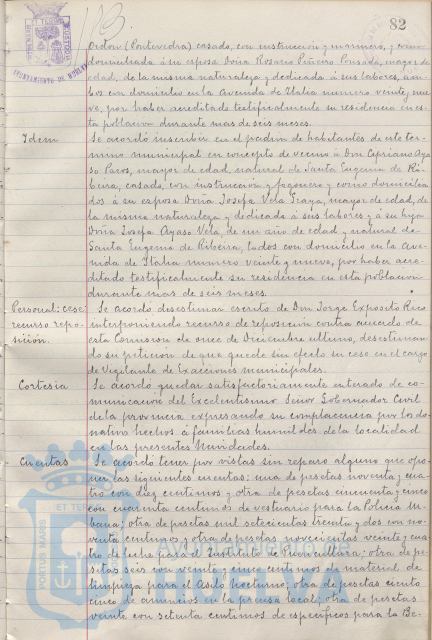 113
82
ordon (Pontevedra) casado, con instrucción y marinero, y como
domiciliada á su esposa Doña Rosario Piñeiro Pousada, mayor de
edad, de la misma naturaleza y dedicada á sus labores, am-
bos con domicilio en la Avenida de Italia numero veinte y nue-
ve, por haber acreditado testifical.mente su residencia en es-
ta poblacion durante mas de seis meses.
Idem
Se acordó inscribir en el padron de habitantes de este ter-
mino municipal en concepto de vecino á Don Cipriano Aya-
so Paros, mayor de edad, natural de Santa Eugenia de Ri-
beira, casado, con instruccion y fogonero y como domicilia-
dos á su esposa Doña Josefa Vela Graya, mayor de edad, de
la misma naturaleza y dedicada á sus labores y a su hija
Doña Josefa Ayaso Vela, de un año de edad y natural de
Santa Eugenia de Ribeira, todos con domicilio en la Ave-
nida de Italia numero veinte y nueve, por haber acre-
ditado testificalmente su residencia en esta poblacion
durante mas de seis meses.
Personal: cese
recurso repo-
sición.
Se acordó desestimar escrito de Don Jorge Exposito Rico
interponiendo recurso de reposicion contra acuerdo de
esta Comision de once de Diciembre ultimo, desestiman-
do su peticion de que quede sin efecto su cese en el cargo
de Vigilante de Exacciones municipales.
Cortesia
Se acordó quedar satisfactoriamente enterado de co-
municacion del Excelentisimo Señor Gobernador Civil
de la provincia expresando su complacencia por los do-
nativos hechos á familias humildes de la localidad
en las presentes Navidades.
Cuentas
Se acordó tener por vistas sin reparo alguno que opo-
ner las siguientes cuentas: una de pesetas noventa y cua-
tro con diez centimos y otra de pesetas cincuenta y cinco
con cuarenta centimos de vestuario para la Policia Ur-
bana; otra de pesetas mil setecientas treinta y dos con no-
venta centimos y otra de pesetas novecientas veinte y cua-
tro de leche para el Instituto de Puericultura; otra de pe-
setas seis con veinte y cinco centimos de material de
limpieza para el Asilo nocturno; otra de pesetas ciento
cinco de anuncios en la prensa local; otra de pesetas
veinte con setenta centimos de especificos para la Be-